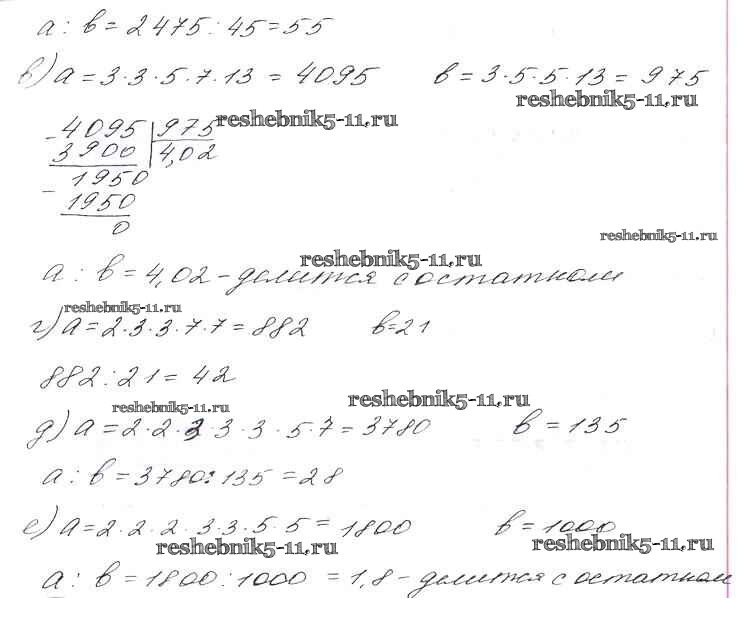 a : b = 2475 : 45 = 55
в) a = 3·3·5·7·13 = 4095 b = 3·5·5·13 = 975
reshebnik5-11.ru
- 4095 | 975 reshebnik5-11.ru
3900 | 4,02
- 1950
1950
0
reshebnik5-11.ru
reshebnik5-11.ru
a : b = 4,02 - делится с остатком
reshebnik5-11.ru
г) a = 2·3·3·7·7 = 882 b = 21
882 : 21 = 42
reshebnik5-11.ru
reshebnik5-11.ru
д) a = 2·2·3·3·3·5·7 = 3780 b = 135
a : b = 3780 : 135 = 28
е) a = 2·2·2·3·3·5·5 = 1800 b = 1000
reshebnik5-11.ru
reshebnik5-11.ru
a : b = 1800 : 1000 = 1,8 - делится с остатком